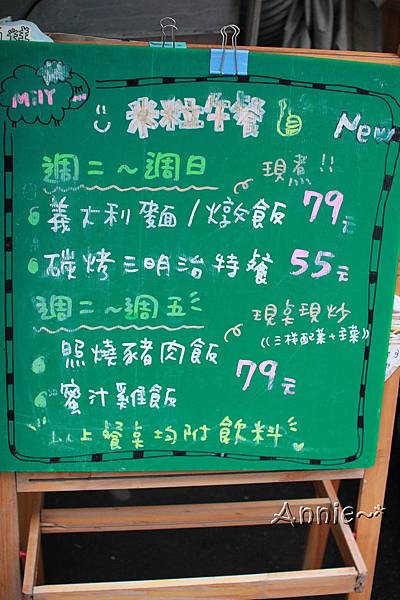 Milly
米粒午餐
New
週二～週日
現煮!!
義大利麵/燉飯 79元
碳烤三明治特餐 55元
週二~週五
現桌現炒
((三樣配菜+主菜))
照燒豬肉飯
79元
蜜汁雞飯
以上餐桌均附飲料
Annie~*